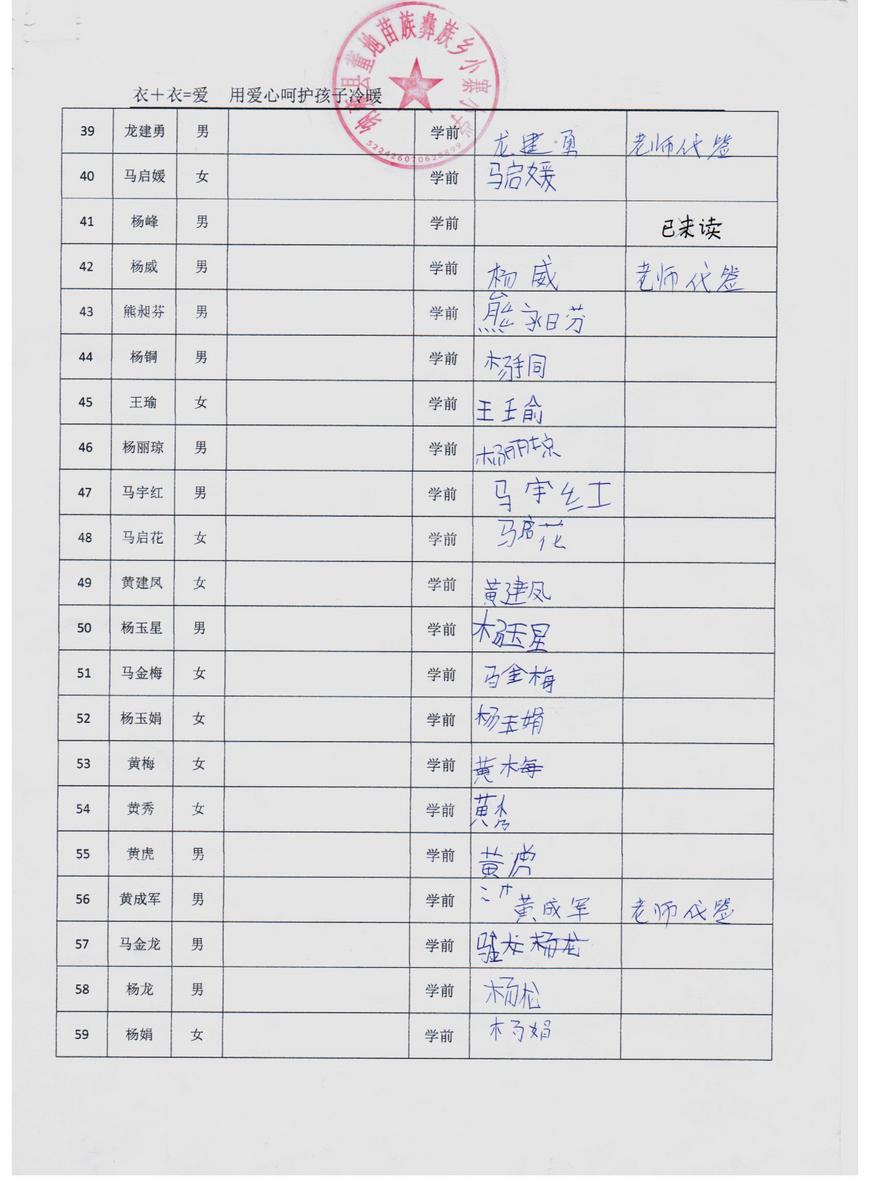 董地苗族彝族乡小寨小学
衣＋衣=爱 用爱心呵护孩子冷暖
39 龙建勇 男 学前 龙建勇 老师代签
40 马启媛 女 学前 马启媛
41 杨峰 男 学前 已未读
42 杨威 男 学前 杨威 老师代签
43 熊昶芬 男 学前 熊昶芬
44 杨锏 男 学前
45 王瑜 女 学前 王瑜
46 杨丽琼 男 学前 杨丽琼
47 马宇红 男 学前 马宇红
48 马启花 女 学前 马启花
49 黄建凤 女 学前 黄建凤
50 杨玉星 男 学前 杨玉星
51 马金梅 女 学前 马金梅
52 杨玉娟 女 学前 杨玉娟
53 黄梅 女 学前 黄梅
54 黄秀 女 学前 黄秀
55 黄虎 男 学前 黄虎
56 黄成军 男 学前 黄成军 老师代签
57 马金龙 男 学前
58 杨龙 男 学前 杨松
59 杨娟 女 学前 杨娟